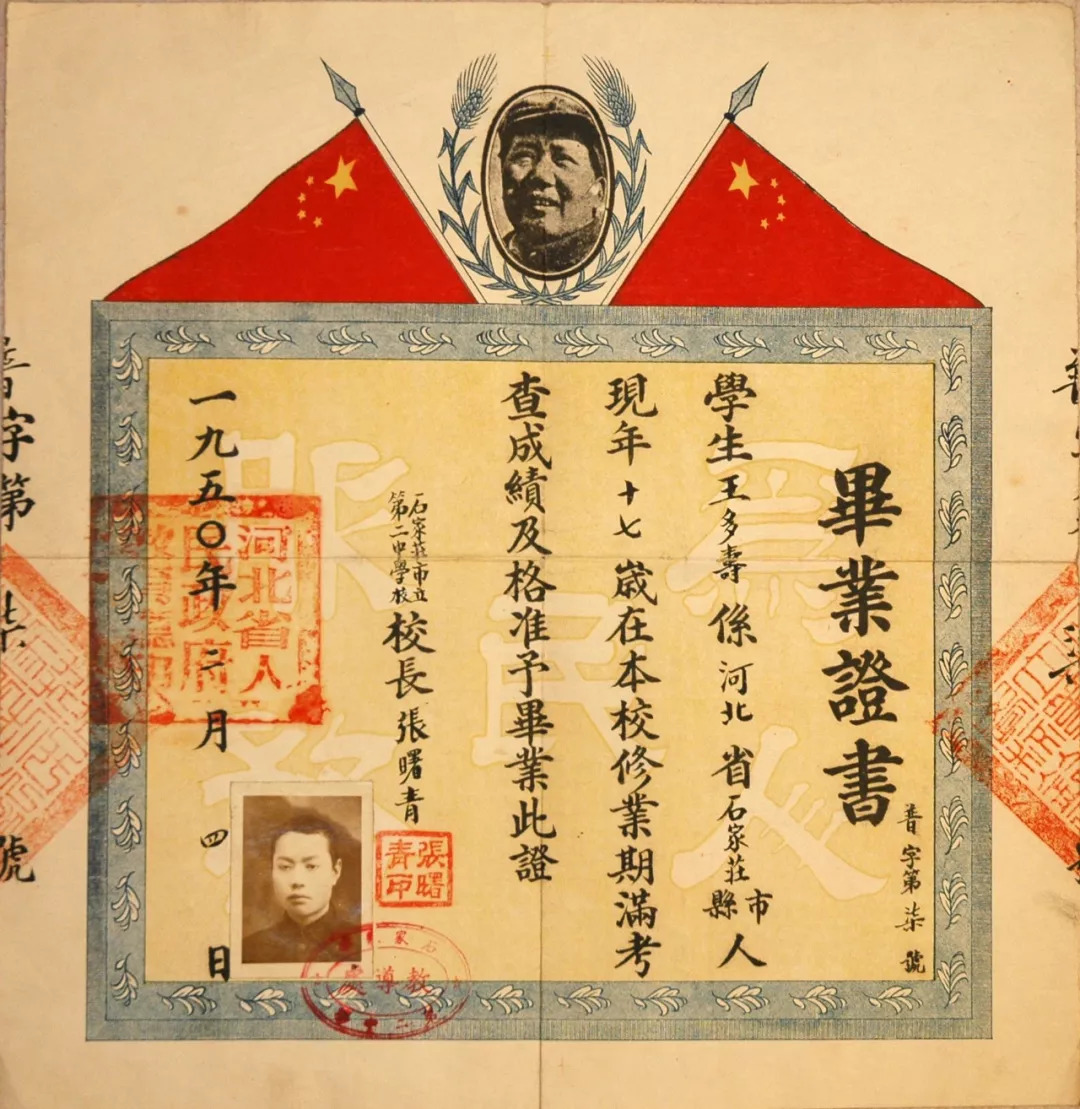 畢業證書
普字第柒號
學生王多壽係河北省石家莊市縣人
現年十七歲在本校修業期滿考
查成績及格准予畢業此證
石家莊市立
第二中學校
校長張曙青
張曙
青印
一九五〇年二月四日
河北省人
民政府
教導處
為人民服務
字第柒號